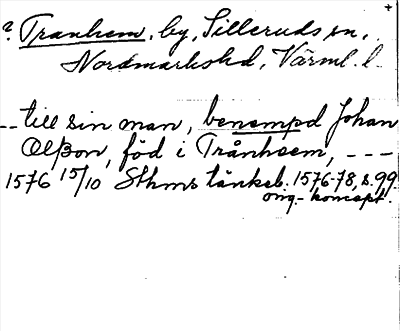 ? Tranhem, by, Silleruds sn,
Nordmarkshd, Värml. l.
-- till sin man, benempd Johan
Olßon, född i Trånheem, ---
1576 15/10 Sthms tänkeb. 1576-78, s. 99.
orig.-koncept.